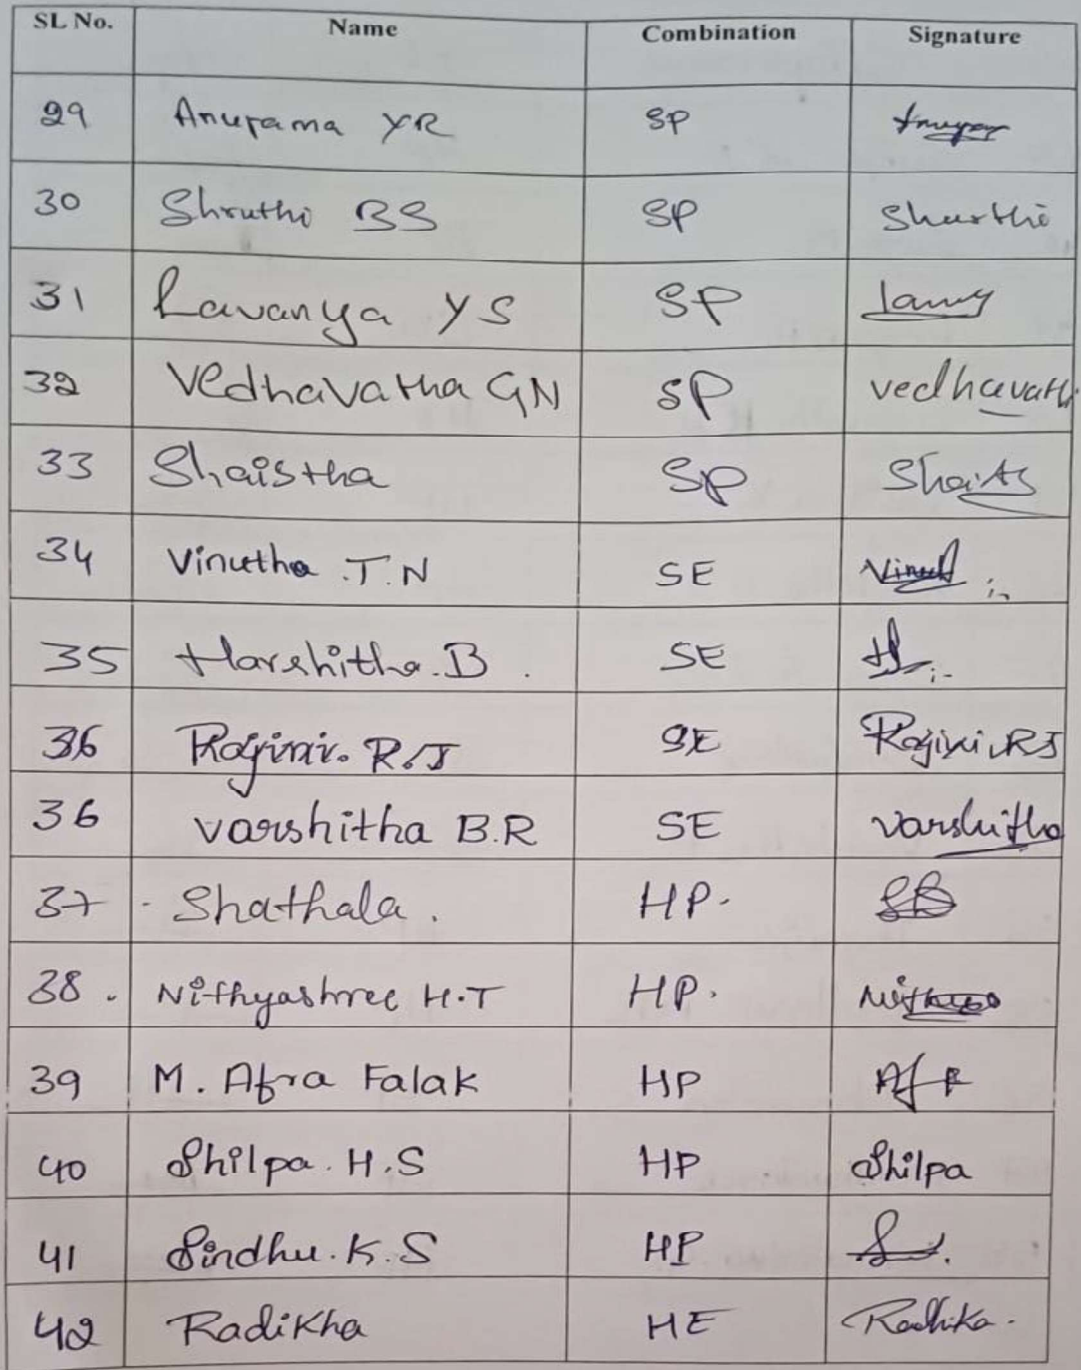 SL No. Name Combination Signature
29 Anupama YR SP
30 Shruthi BS SP Shurthi
31 Lavanya YS SP
32 Vedhavatha GN SP vedhavath
33 Shaistha SP
34 Vinutha .T.N SE
35 Harshitha.B. SE
36 Ragini. R.J SE Ragini.RJ
36 varshitha B.R SE varshitha
37 - Shathala. HP.
38. Nithyashree H.T HP.
39 M. Afra Falak HP
40 Shilpa. H.S HP Shilpa
41 Sindhu. K.S HP
42 Radikha HE Radhika.